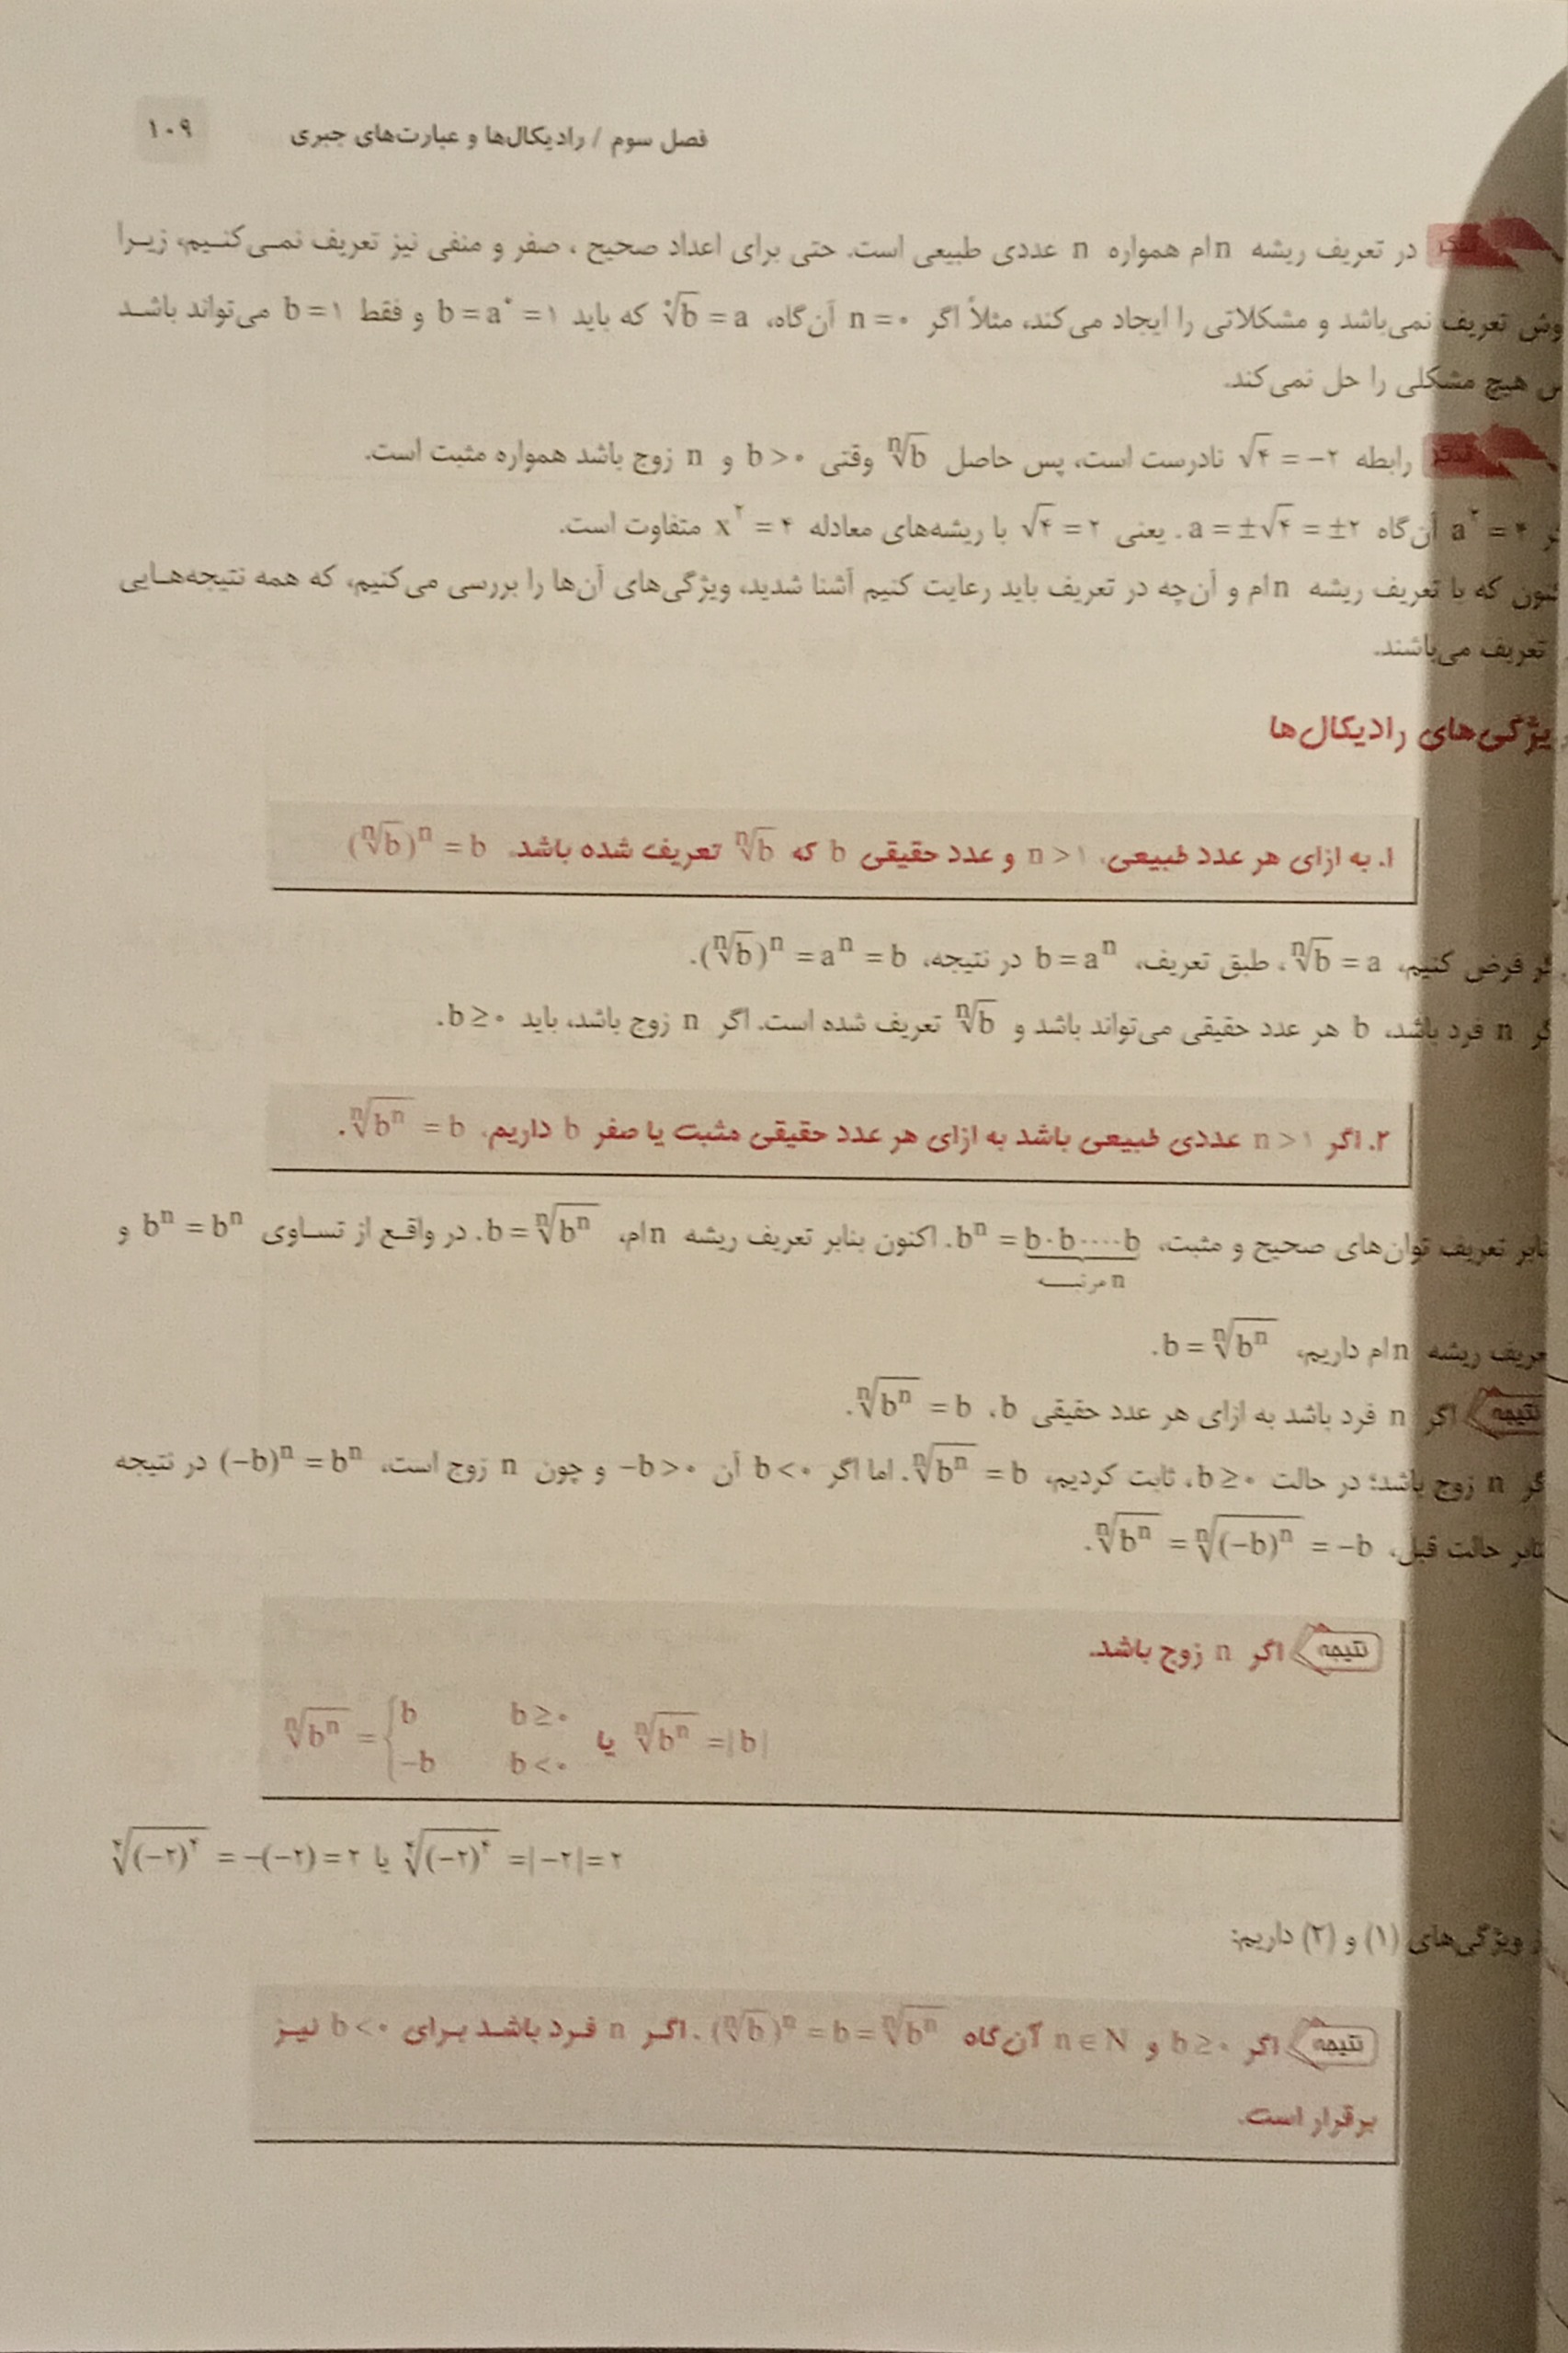 فصل سوم / رادیکال‌ها و عبارت‌های جبری ۱۰۹
در تعریف ریشه nام همواره n عددی طبیعی است. حتی برای اعداد صحیح ، صفر و منفی نیز تعریف نمی‌کنیم، زیرا
تعریف نمی‌باشد و مشکلاتی را ایجاد می‌کند، مثلاً اگر n = ۰ آن‌گاه، ⁰√b = a که باید b = a⁰ = ۱ و فقط b = ۱ می‌تواند باشد
هیچ مشکلی را حل نمی‌کند.
تذکر رابطه √۴ = −۲ نادرست است، پس حاصل ⁿ√b وقتی b > ۰ و n زوج باشد همواره مثبت است.
a² = ۴ آن‌گاه a = ±√۴ = ±۲ . یعنی √۴ = ۲ با ریشه‌های معادله x² = ۴ متفاوت است.
که با تعریف ریشه nام و آن‌چه در تعریف باید رعایت کنیم آشنا شدید، ویژگی‌های آن‌ها را بررسی می‌کنیم، که همه نتیجه‌هایی
تعریف می‌باشند.
ویژگی‌های رادیکال‌ها
۱. به ازای هر عدد طبیعی، n > ۱ و عدد حقیقی b که ⁿ√b تعریف شده باشد. (ⁿ√b)ⁿ = b
فرض کنیم، ⁿ√b = a ، طبق تعریف، b = aⁿ در نتیجه، (ⁿ√b)ⁿ = aⁿ = b.
n فرد باشد، b هر عدد حقیقی می‌تواند باشد و ⁿ√b تعریف شده است. اگر n زوج باشد، باید b ≥ ۰.
۲. اگر n > ۱ عددی طبیعی باشد به ازای هر عدد حقیقی مثبت یا صفر b داریم، ⁿ√bⁿ = b.
تعریف توان‌های صحیح و مثبت، bⁿ = b·b·…·b. اکنون بنابر تعریف ریشه nام، b = ⁿ√bⁿ. در واقع از تساوی bⁿ = bⁿ و
n مرتبه
ریشه nام داریم، b = ⁿ√bⁿ.
نتیجه اگر n فرد باشد به ازای هر عدد حقیقی b، ⁿ√bⁿ = b.
n زوج باشد؛ در حالت b ≥ ۰، ثابت کردیم، ⁿ√bⁿ = b. اما اگر b < ۰ آن −b > ۰ و چون n زوج است، (−b)ⁿ = bⁿ در نتیجه
حالت قبل، ⁿ√bⁿ = ⁿ√(−b)ⁿ = −b.
نتیجه اگر n زوج باشد.
ⁿ√bⁿ = { b b ≥ ۰ یا ⁿ√bⁿ = |b|
−b b < ۰
⁴√(−۲)⁴ = −(−۲) = ۲ یا ⁴√(−۲)⁴ = |−۲| = ۲
ویژگی‌های (۱) و (۲) داریم:
نتیجه اگر b ≥ ۰ و n ∈ N آن‌گاه (ⁿ√b)ⁿ = b = ⁿ√bⁿ . اگر n فرد باشد برای b < ۰ نیز
برقرار است.